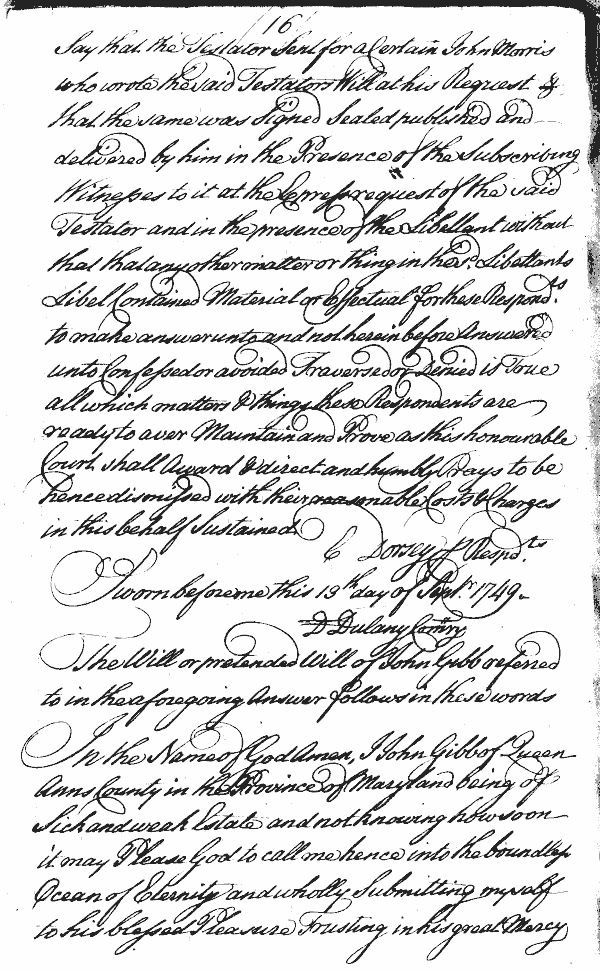 16
Say that the Testator Sent for a Certain John Morris
who wrote the said Testators Will at his Request &
that the same was Signed Sealed published and
delivered by him in the Presence of the Subscribing
Witnesses to it at the Express request of the said
Testator and in the presence of the Libellant without
that that any other matter or thing in the sd. Libellants
Libel Contained Material or Effectual for these Respondts.
to make answer unto and not herein before Answered
unto Confessed or avoided Traversed or Denied is True
all which matters & things these Respondents are
ready to aver Maintain and Prove as this honourable
Court shall Award & direct and humbly Prays to be
hence dismissed with their reasonable Costs & Charges
in this behalf Sustained.
E Dorsey of Respdts.
Sworn before me this 13th day of Septr. 1749.
D Dulany Comry
The Will or pretended Will of John Gibb referred
to in the aforegoing Answer follows in these words
In the Name of God Amen, I John Gibb of Queen
Anns County in the Province of Maryland being of
Sick and weak Estate and not knowing how soon
it may Please God to call me hence into the boundless
Ocean of Eternity and wholly Submitting myself
to his blessed Pleasure Trusting in his great Mercy